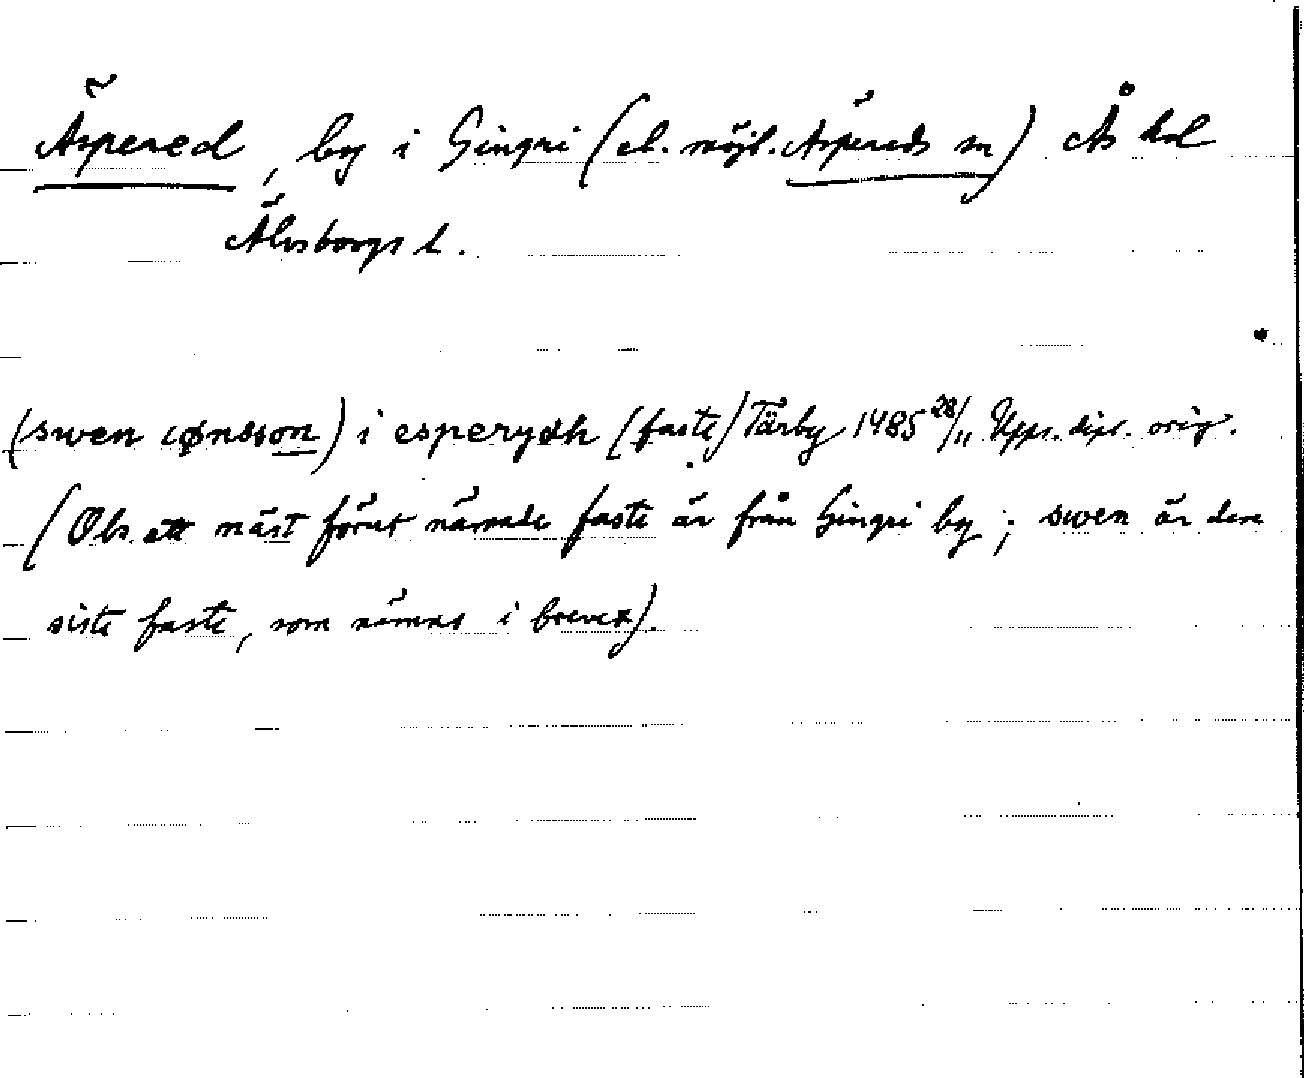 Äspered, by i Gingri (el. möjl. Äspereds sn) Ås hd
Älvsborgs l.
(swen iønsson) i esperydh (faste) Tärby 1485 28/11 Upps. dipl. orig.
(Obs att näst förut nämnde faste är från Gingri by; swen är den
siste faste, som nämns i brevet).